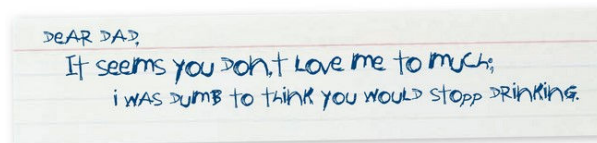 DeAR DAD,
It seems you Don,t Love me to much;
i WAS DumB to tHinK you WOULD STopp DRinKing.